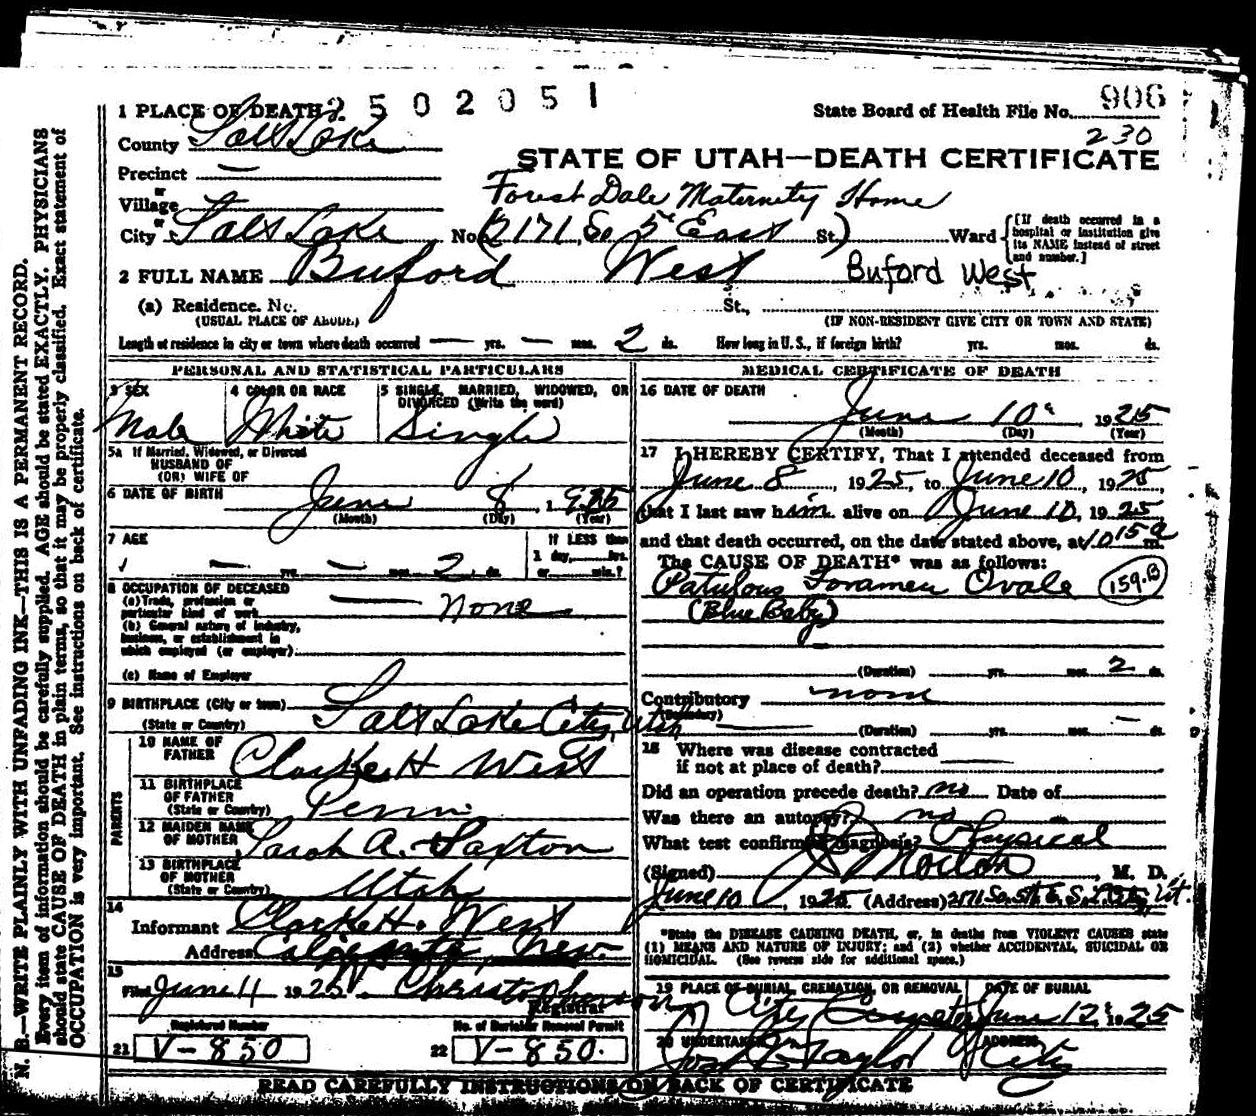 N. B.—WRITE PLAINLY WITH UNFADING INK—THIS IS A PERMANENT RECORD.
Every item of information should be carefully supplied. AGE should be stated EXACTLY. PHYSICIANS
should state CAUSE OF DEATH in plain terms, so that it may be properly classified. Exact statement of
OCCUPATION is very important. See instructions on back of certificate.
2502051
1 PLACE OF DEATH
State Board of Health File No. 906
230
County Salt Lake
STATE OF UTAH—DEATH CERTIFICATE
Precinct —
Forest Dale Maternity Home
or
Village
or
City Salt Lake No. (2171 So 5th East St.) Ward
[If death occurred in a
hospital or institution give
its NAME instead of street
and number.]
2 FULL NAME Buford West Buford West
(a) Residence. No. St.,
(USUAL PLACE OF ABODE) (IF NON-RESIDENT GIVE CITY OR TOWN AND STATE)
Length of residence in city or town where death occurred — yrs. — mos. 2 ds. How long in U. S., if foreign birth? yrs. mos. ds.
PERSONAL AND STATISTICAL PARTICULARS
3 SEX 4 COLOR OR RACE 5 SINGLE, MARRIED, WIDOWED, OR
DIVORCED (Write the word)
Male White Single
5a If Married, Widowed, or Divorced
HUSBAND OF
(OR) WIFE OF
6 DATE OF BIRTH June 8, 1925
(Month) (Day) (Year)
7 AGE If LESS than
1 day, hrs.
— yrs. — mos. 2 ds. or min.?
8 OCCUPATION OF DECEASED
(a) Trade, profession or
particular kind of work — none
(b) General nature of industry,
business, or establishment in
which employed (or employer)
(c) Name of Employer
9 BIRTHPLACE (City or town) Salt Lake City, Utah
(State or Country)
PARENTS
10 NAME OF
FATHER Clarke H West
11 BIRTHPLACE
OF FATHER
(State or Country) Penn.
12 MAIDEN NAME
OF MOTHER Sarah A. Saxton
13 BIRTHPLACE
OF MOTHER
(State or Country) Utah
14
Informant Clarke H. West
Address Nev.
15
Filed June 11 1925 Christopherson
Registrar
Registered Number No. of Burial or Removal Permit
21 V-850 22 V-850.
MEDICAL CERTIFICATE OF DEATH
16 DATE OF DEATH
June 10 1925
(Month) (Day) (Year)
17 I HEREBY CERTIFY, That I attended deceased from
June 8, 1925, to June 10, 1925,
that I last saw him alive on June 10, 1925
and that death occurred, on the date stated above, at 10 15 a m.
The CAUSE OF DEATH* was as follows:
Patulous Foramen Ovale 159.B
(Blue Baby)
(Duration) yrs. mos. 2 ds.
Contributory none
(Secondary)
(Duration) yrs. mos. — ds.
18 Where was disease contracted
if not at place of death?
Did an operation precede death? no Date of
Was there an autopsy? no
What test confirmed diagnosis? Physical
(Signed) Morton, M. D.
June 10, 1925 (Address) 2171 So. 5th E. S. L. City, Ut.
*State the DISEASE CAUSING DEATH, or, in deaths from VIOLENT CAUSES state
(1) MEANS AND NATURE OF INJURY; and (2) whether ACCIDENTAL, SUICIDAL OR
HOMICIDAL. (See reverse side for additional space.)
19 PLACE OF BURIAL, CREMATION, OR REMOVAL DATE OF BURIAL
City June 12, 1925
20 UNDERTAKER ADDRESS
Taylor City
READ CAREFULLY INSTRUCTIONS ON BACK OF CERTIFICATE